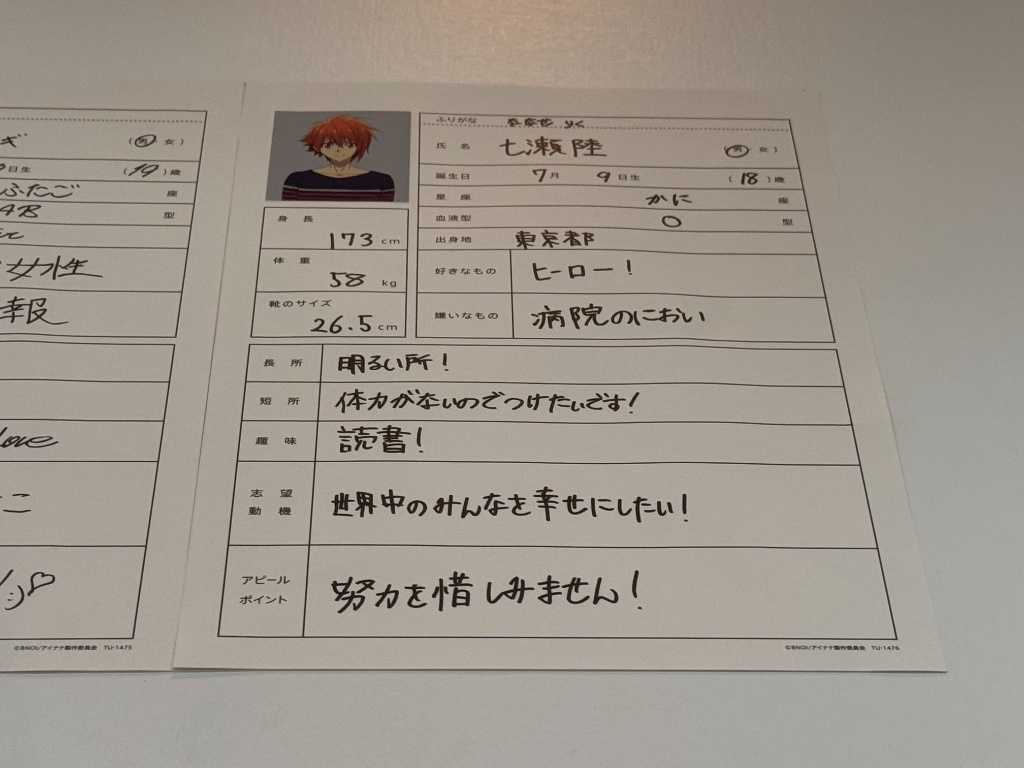 ギ (男・女)
日生 (19)歳
ふたご 座
AB 型
女性
報
Love
こ
©BNOI/アイナナ製作委員会 TU-1475
ふりがな ななせ りく
氏名 七瀬陸 (男・女)
誕生日 7月 9日生 (18)歳
星座 かに 座
血液型 O 型
出身地 東京都
好きなもの ヒーロー!
嫌いなもの 病院のにおい
身長 173 cm
体重 58 kg
靴のサイズ 26.5 cm
長所 明るい所!
短所 体力がないのでつけたいです!
趣味 読書!
志望動機 世界中のみんなを幸せにしたい!
アピールポイント 努力を惜しみません!
©BNOI/アイナナ製作委員会 TU-1476